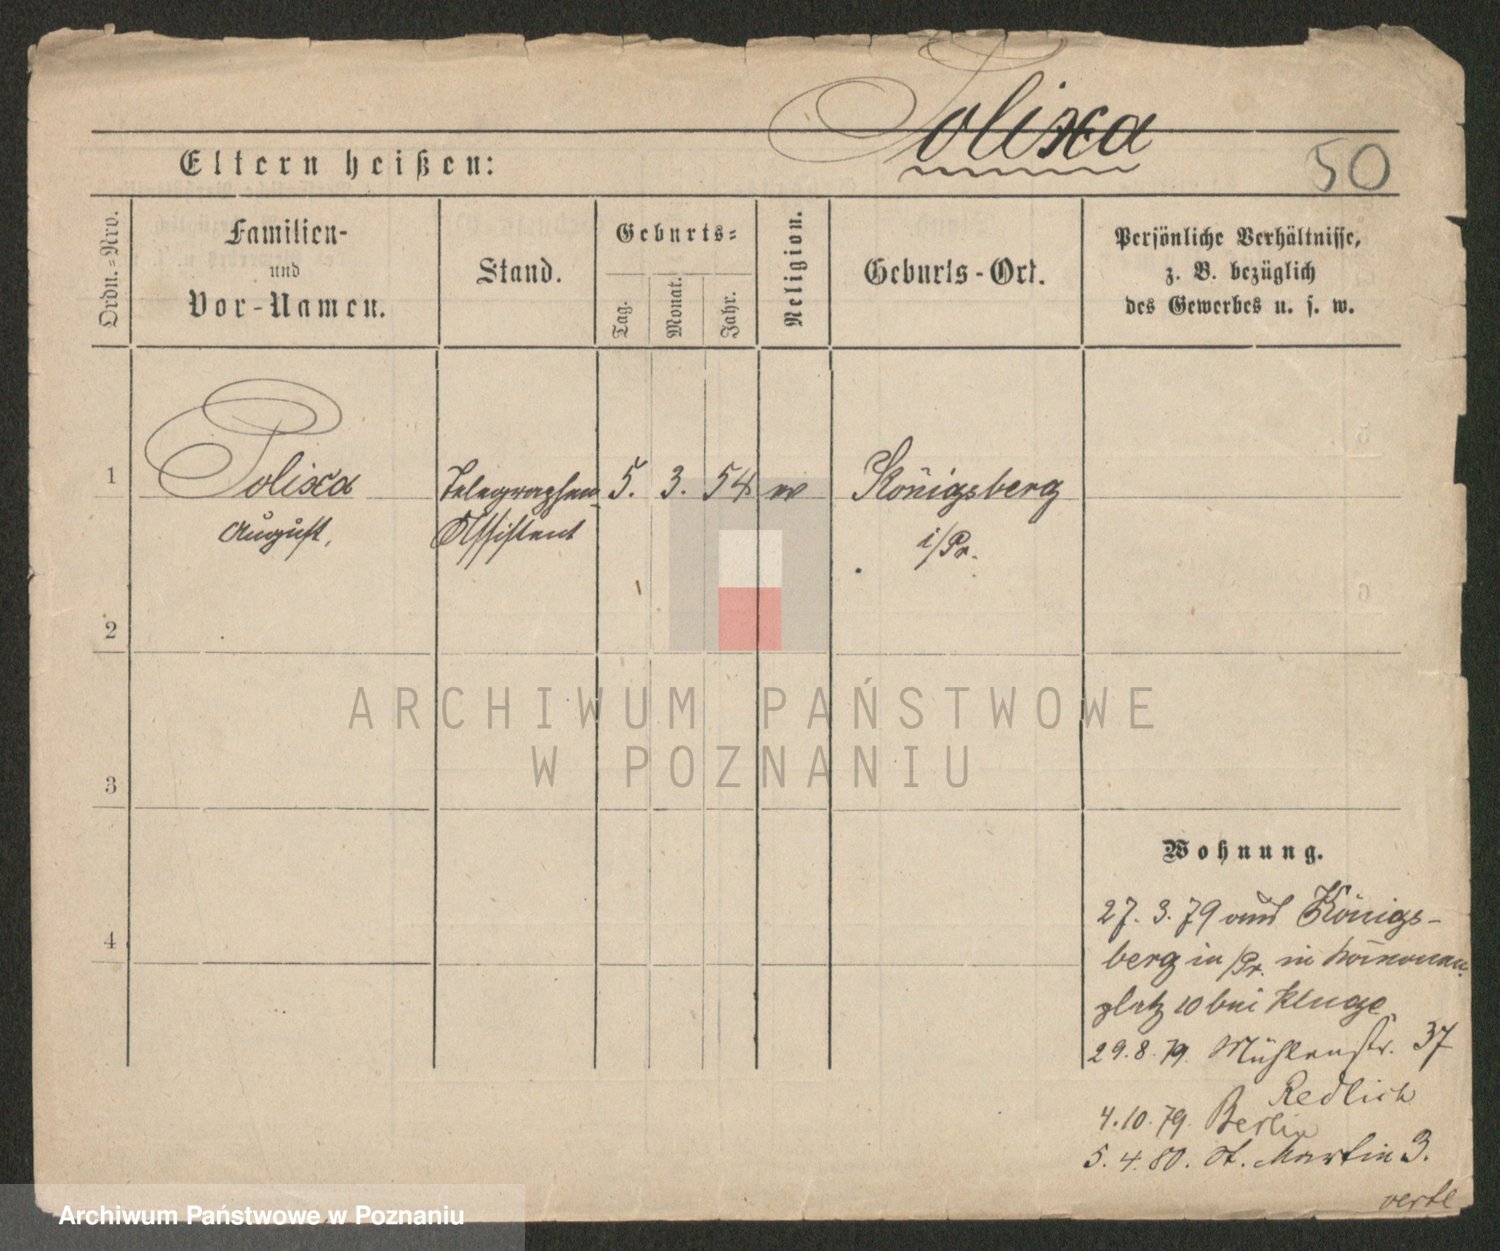 Polixa
50
Eltern heißen:
Ordn.-Nro.
Familien-
und
Vor-Namen.
Stand.
Geburts-
Tag.
Monat.
Jahr.
Religion.
Geburts-Ort.
Persönliche Verhältnisse,
z. B. bezüglich
des Gewerbes u. s. w.
1
Polixa
August,
Telegraphen
Assistent
5. 3. 54
Königsberg
i/Pr.
2
3
4
ARCHIWUM PAŃSTWOWE
W POZNANIU
Wohnung.
27. 3. 79 aus Königs-
berg in /Pr. in
platz 10 bei Kluge
29. 8. 79. Mühlenstr. 37
Redlich
4. 10. 79. Berlin
5. 4. 80. St. Martin 3.
verte
Archiwum Państwowe w Poznaniu